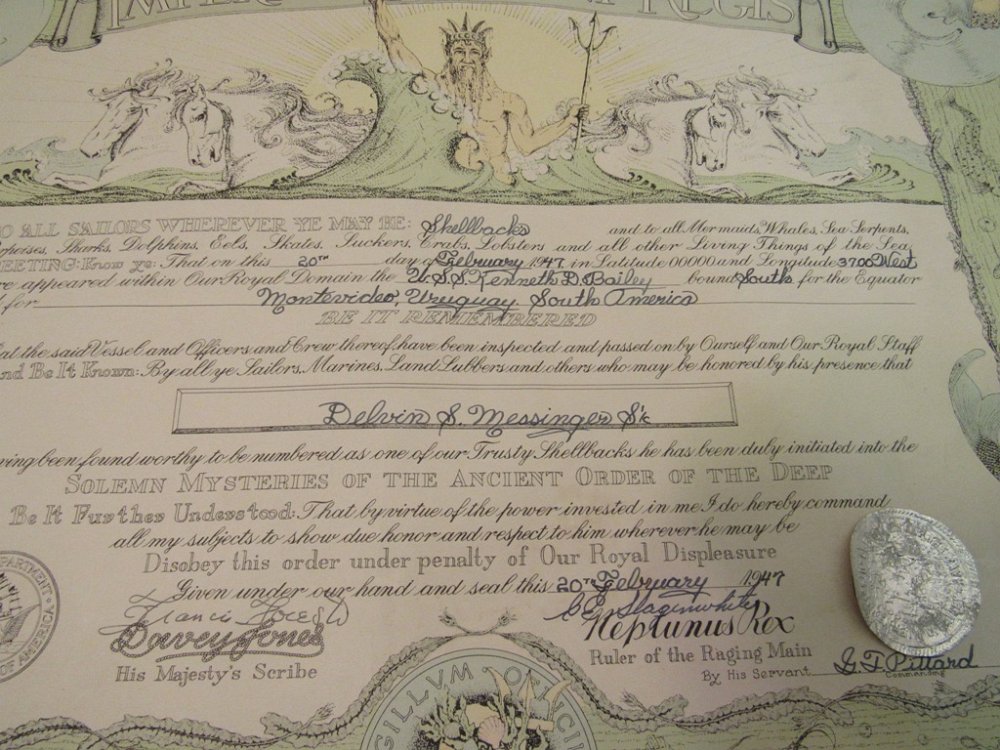 REGIS
O ALL SAILORS WHEREVER YE MAY BE: Shellbacks and to all Mermaids, Whales, Sea Serpents,
rpoises, Sharks, Dolphins, Eels, Skates, Suckers, Crabs, Lobsters and all other Living Things of the Sea,
EETING: Know ye: That on this 20TH day of February 1947, in Latitude 00000 and Longitude 3700 West
re appeared within Our Royal Domain the U.S.S. Kenneth D. Bailey bound South for the Equator
d for Montevideo, Uruguay, South America
BE IT REMEMBERED
at the said Vessel and Officers and Crew thereof, have been inspected and passed on by Ourself and Our Royal Staff
nd Be It Known: By all ye Sailors, Marines, Land Lubbers and others who may be honored by his presence that
Delvin S. Messinger
ving been found worthy to be numbered as one of our Trusty Shellbacks he has been duly initiated into the
SOLEMN MYSTERIES OF THE ANCIENT ORDER OF THE DEEP
Be It Further Understood: That by virtue of the power invested in me I do hereby command
all my subjects to show due honor and respect to him wherever he may be
Disobey this order under penalty of Our Royal Displeasure
Given under our hand and seal this 20TH February 1947
Davey Jones
His Majesty's Scribe
Neptunus Rex
Ruler of the Raging Main
By His Servant G. T. Pittard
Commanding
OF AMERICA